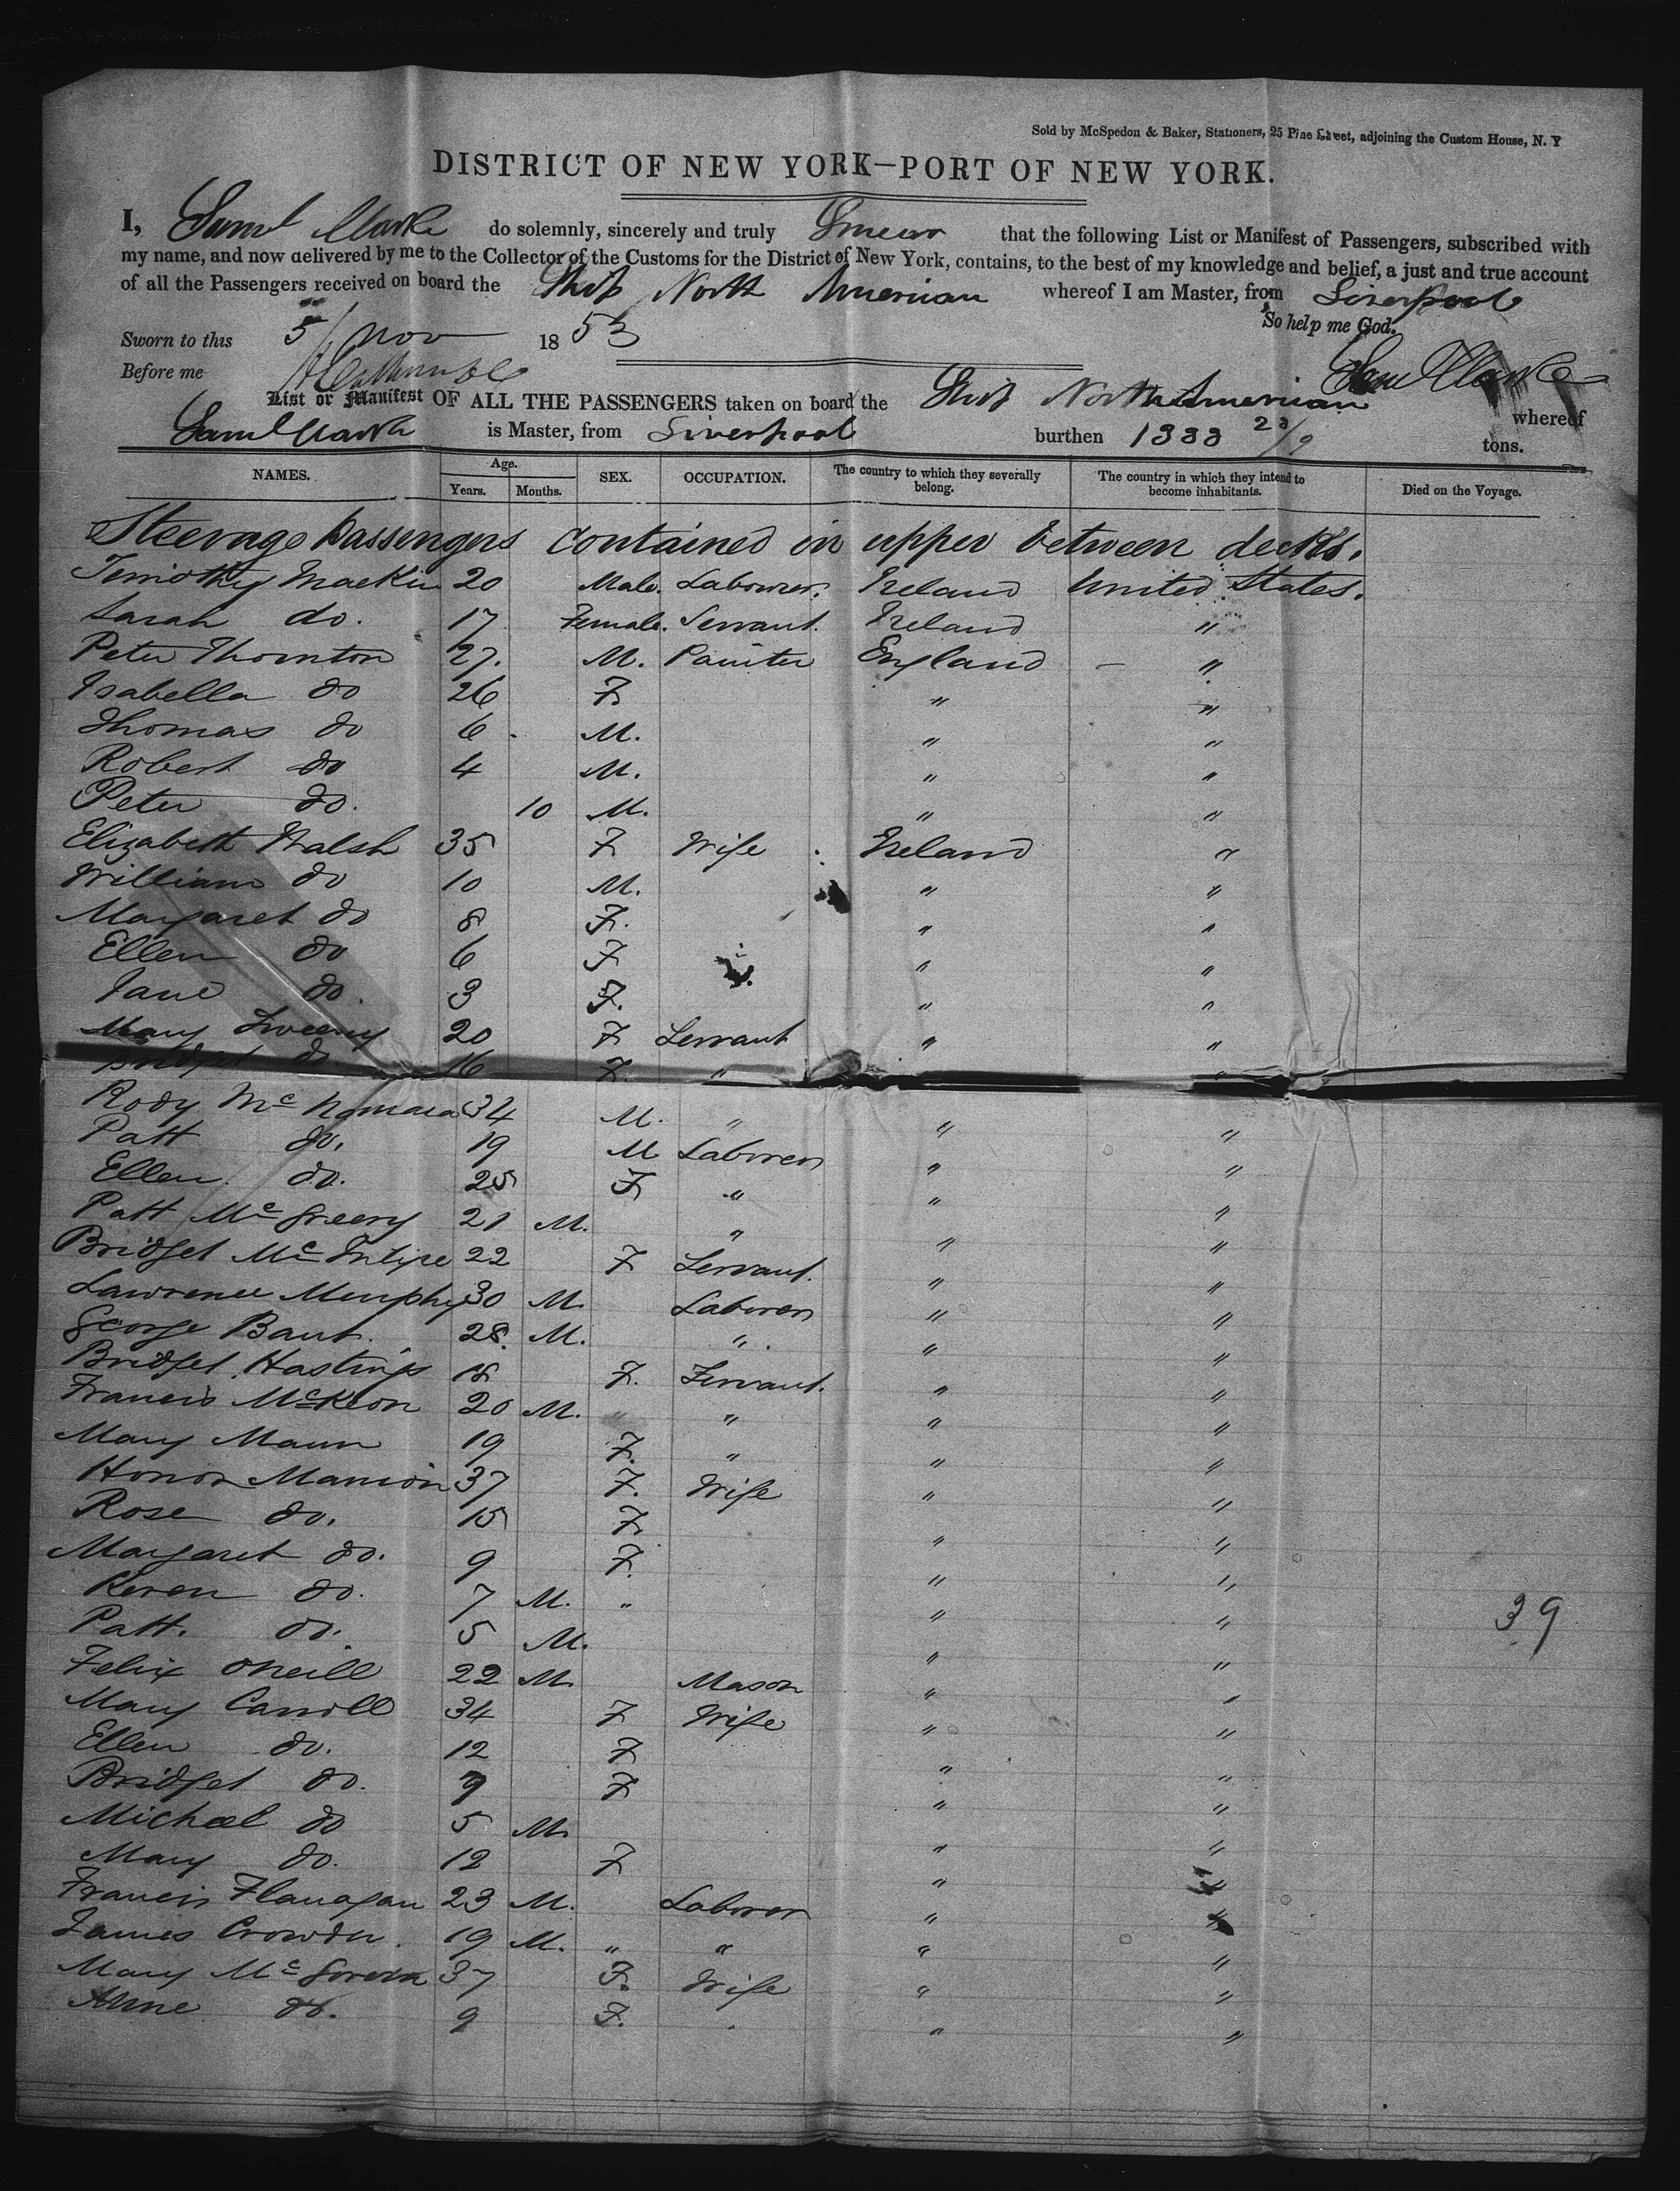 Sold by McSpedon & Baker, Stationers, 25 Pine Street, adjoining the Custom House, N. Y
DISTRICT OF NEW YORK—PORT OF NEW YORK.
I, Saml Clarke do solemnly, sincerely and truly Swear that the following List or Manifest of Passengers, subscribed with
my name, and now delivered by me to the Collector of the Customs for the District of New York, contains, to the best of my knowledge and belief, a just and true account
of all the Passengers received on board the Ship North American whereof I am Master, from Liverpool
So help me God.
Sworn to this 5/ Nov 1853
Before me Saml Clarke
List or Manifest OF ALL THE PASSENGERS taken on board the Ship North American whereof
Saml Clarke is Master, from Liverpool burthen 1383 23/9 tons.
NAMES. Age. Years. Months. SEX. OCCUPATION. The country to which they severally belong. The country in which they intend to become inhabitants. Died on the Voyage.
Steerage passengers contained in upper between decks.
Timothy Mackin 20 Male. Labourer. Ireland United States.
Sarah do. 17 Female. Servant. Ireland "
Peter Thornton 27. M. Painter England — "
Isabella do 26 F " "
Thomas do 6 M. " "
Robert do 4 M. " "
Peter do. 10 M. " "
Elizabeth Walsh 35 F Wife Ireland "
William do 10 M. " "
Margaret do 8 F. " "
Ellen do 6 F " "
Jane do. 3 F. " "
Mary Sweeny 20 F Servant " "
Bridget do. 16 F. " "
Rody McNamara 34 M. " " "
Patt do. 19 M Laborer " "
Ellen do. 25 F " " "
Patt McGreevy 21 M. " " "
Bridget McIntire 22 F Servant. " "
Lawrence Murphy 30 M. Laborer " "
George Bant. 28. M. " " "
Bridget Hastings 18 F. Servant. " "
Francis McKeon 20 M. " " " "
Mary Mann 19 F. " " "
Honor Mannion 37 F. Wife " "
Rose do. 15 F " "
Margaret do. 9 F. " "
Keron do. 7 M. " " "
Patt. do. 5 M. " "
39
Felix ONeill 22 M. Mason " "
Mary Carroll 34 F Wife " "
Ellen do. 12 F " "
Bridget do. 9 F " "
Michael do 5 M. " "
Mary do. 12 F " "
Francis Flanagan 23 M. Laborer " "
James Crowder. 19 M. " " " "
Mary McGovern 37 F. Wife " "
Anne do. 9 F. " "